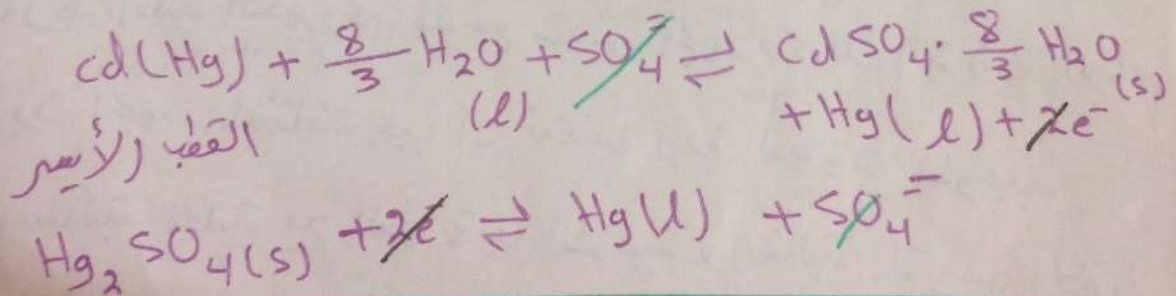 cd(Hg) + 8/3 H₂O (l) + SO₄⁼ ⇌ CdSO₄ · 8/3 H₂O (s)
+ Hg(l) + 2e⁻
القطب الأيسر
Hg₂SO₄(s) + 2e⁻ ⇌ Hg(l) + SO₄⁼